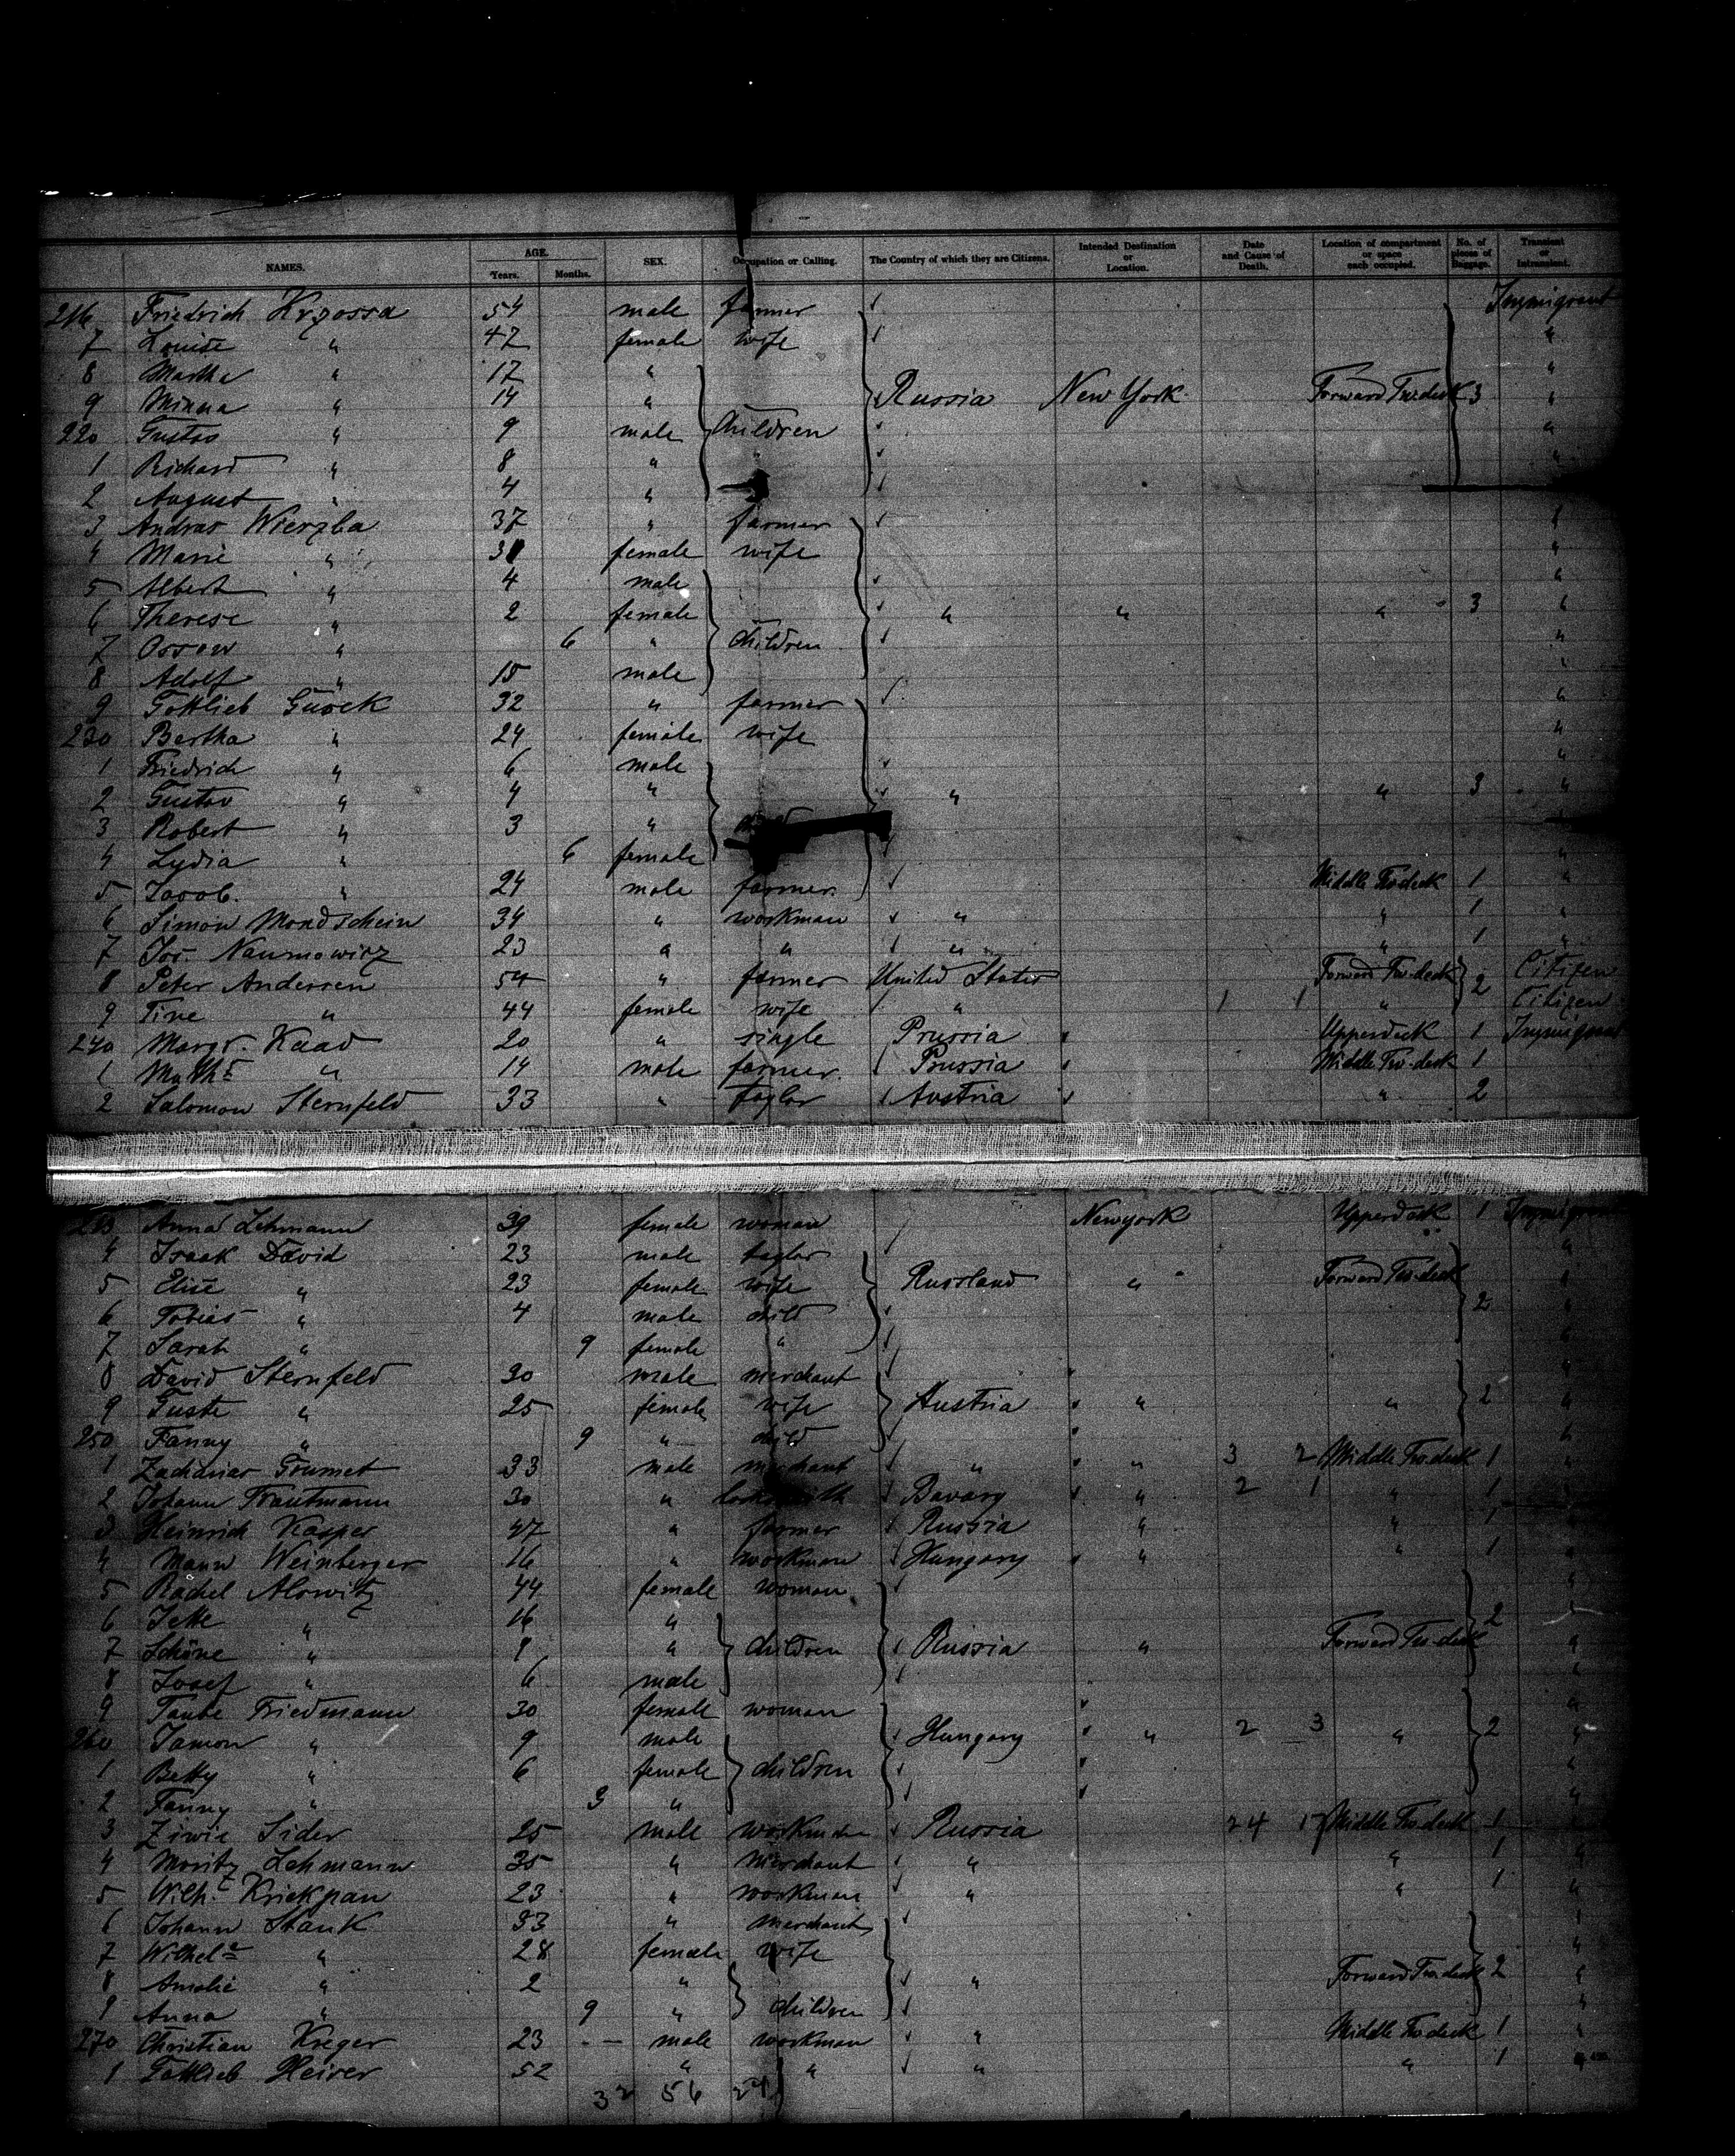 NAMES. AGE. Years. Months. SEX. Occupation or Calling. The Country of which they are Citizens. Intended Destination or Location. Date and Cause of Death. Location of compartment or space each occupied. No. of pieces of Baggage. Transient or Intransient.
216 Friedrich 54 male farmer Immigrant
7 Louise " 47 female wife "
8 Martha " 17 " "
9 Minna " 14 " Russia New York Forward Tw.deck 3 "
220 Gustav " 9 male Children "
1 Richard " 8 " "
2 August " 4 "
3 Andreas Wierzba 37 " farmer "
4 Marie " 31 female wife "
5 Albert " 4 male "
6 Therese " 2 female " " " 3 "
7 " 6 " children "
8 Adolf " 15 male "
9 Gottlieb 32 " farmer "
230 Bertha " 24 female wife "
1 Friedrich " 6 male "
2 Gustav " 4 " " " 3 "
3 Robert " 3 "
4 Lydia " 6 female "
5 Jacob. " 24 male farmer. Middle Tw.deck 1 "
6 Simon Mondschein 34 " workman " " 1 "
7 Jos. Naumowicz 23 " " " " 1 "
8 Peter Andersen 54 " farmer United States Forward Tw.deck 2 Citizen
9 Tine " 44 female wife " 1 1 " Citizen
240 Margr. Kaad 20 " single Prussia Upperdeck 1 Immigrant
1 Maths " 14 male farmer. Prussia Middle Tw.deck 1
2 Salomon Sternfeld 33 " taylor Austria " 2
243 Anna Lehmann 39 female woman Newyork Upperdeck 1 Immigrant
4 Isaak David 23 male taylor "
5 Elise " 23 female wife Russland " Forward Tw.deck "
6 Tobias " 4 male child 2 "
7 Sarah " 9 female " "
8 David Sternfeld 30 male merchant "
9 Guste " 25 female wife Austria " " 2 "
250 Fanny " 9 " child "
1 Zacharias Grumet 33 male merchant " " 3 2 Middle Tw.deck 1 "
2 Johann Trautmann 30 " locksmith Bavary " 2 1 " 1 "
3 Heinrich Kasper 47 " farmer Russia " " 1 "
4 Mann Weinberger 16 " workman Hungary " " 1 "
5 Rachel 44 female woman "
6 Jette " 16 " 2 "
7 Schöne " 9 " children Russia " Forward Tw.deck "
8 Josef " 6 male "
9 Taube Friedmann 30 female woman "
260 " 9 male Hungary " 2 3 " 2 "
1 Betty " 6 female children "
2 Fanny " 3 " "
3 Ziwie Sider 25 male workman Russia 24 17 Middle Tw.deck 1
4 Moritz Lehmann 35 " merchant " " 1 "
5 Wilh. 23 " workman " " 1 "
6 Johann Stank 33 " merchant "
7 Wilhele " 28 female wife "
8 Amalie " 2 " " Forward Tw.deck 2 "
9 Anna " 9 " children "
270 Christian Kreger 23 - - male workman " Middle Tw.deck 1 "
1 Gottlieb 52 " " " " 1 "
32 56 24